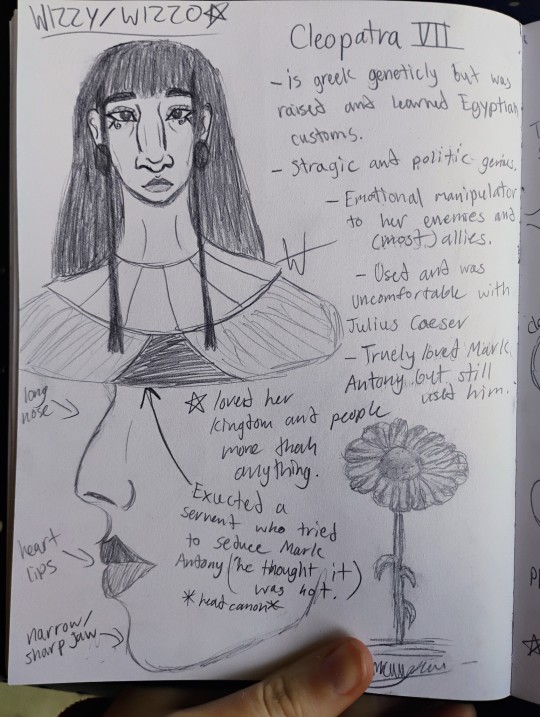 WIZZY/WIZZO☆
Cleopatra VII
- is greek geneticly but was
raised and learned Egyptian
customs.
- Stragic and politic genius.
- Emotional manipulator
to her enemies and
(most) allies.
W
- Used and was
uncomfortable with
Julius Caeser
- Truely loved Mark
Antony but still
used him.
long
nose
☆ loved her
kingdom and people
more than
anything.
Exucted a
servent who tried
to seduce Mark
Antony (he thought it)
was hot.
*head canon*
heart
lips
narrow/
sharp jaw